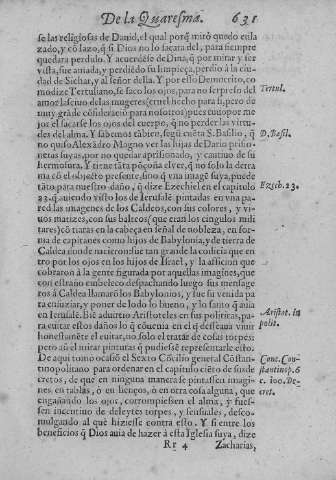 De la Quaresma. 631
se las religiosas de Dauid, el qual porq̃ mirò quedo enla
zado, y cõ lazo, q̃ si Dios no lo sacara del, para siempre
quedara perdido. Y acuerdese de Dina, q̃ por mirar y ser
vista, fue amada, y perdiẽdo su limpieça, perdio à la ciu-
dad de Sichar, y al señor della. Y por esto Democrito, co
mo dize Tertuliano, se saco los ojos, para no ser preso del
Tertul.
amor lasciuo de las mugeres (cruel hecho para si, pero de
muy grãde consideraciõ para nosotros) pues tuuo por me
jor el sacarse los ojos del cuerpo, q̃ no perder las virtu-
des del alma. Y sabemos tãbien, segũ cuẽta S. Basilio, q̃
D. Basil.
no quiso Alexãdro Magno ver las hijas de Dario prisio-
neras suyas, por no quedar aprisionado, y cautiuo de su
hermosura. Y tiene tãta põçoña el ver, q̃ no solo la derra
ma cõ el objecto presente, sino q̃ vna imagẽ suya, puede
tãto para nuestro daño, q̃ dize Ezechiel en el capitulo
Ezech. 23.
23. q̃ auiendo visto los de Ierusalẽ pintadas en vna pa-
red las imagenes de los Caldeos, con sus colores, y vi-
uos matizes, con sus balteos (que eran los cingulos mili
tares) cõ tiaras en la cabeça en señal de nobleza, en for-
ma de capitanes como hijos de Babylonia, y de tierra de
Caldea donde nacieron fue tan grande la codicia que en
tro por los ojos en los hijos de Israel, y la aficion que
cobraron à la gente figurada por aquellas imagines, que
con estraño embeleco despachando luego sus mensage
ros à Caldea llamarõ los Babylonios, y fue su venida pa
ra ensuziar, y poner de lodo lo bueno, y lo santo q̃ auia
en Ierusalẽ. Biẽ aduirtio Aristoteles en sus politicas, pa
Aristot. in
polit.
ra euitar estos daños lo q̃ cõuenia en el q̃ desseaua viuir
honestamẽte el euitar, no solo el tratar de cosas torpes:
pero aũ el mirar pinturas q̃ pudiessẽ representarle esto.
De aqui tomo ocasiõ el Sexto Cõcilio general Cõstan-
Conc. Con-
tinopolitano para ordenar en el capitulo ciẽto de sus de
stantinop. 6
cretos, de que en ninguna manera se pintassẽn imagi-
c. 100. De-
nes, en tablas, ò en lienços, ò en otra cosa alguna, que
cret.
engañando los ojos, corrompiessen el alma, y fues-
sen incentiuo de deleytes torpes, y sensuales, desco-
mulgando al que hiziesse contra esto. Y si entre los
beneficios q̃ Dios auia de hazer à esta Iglesia suya, dize
Rr 4 Zacharias,